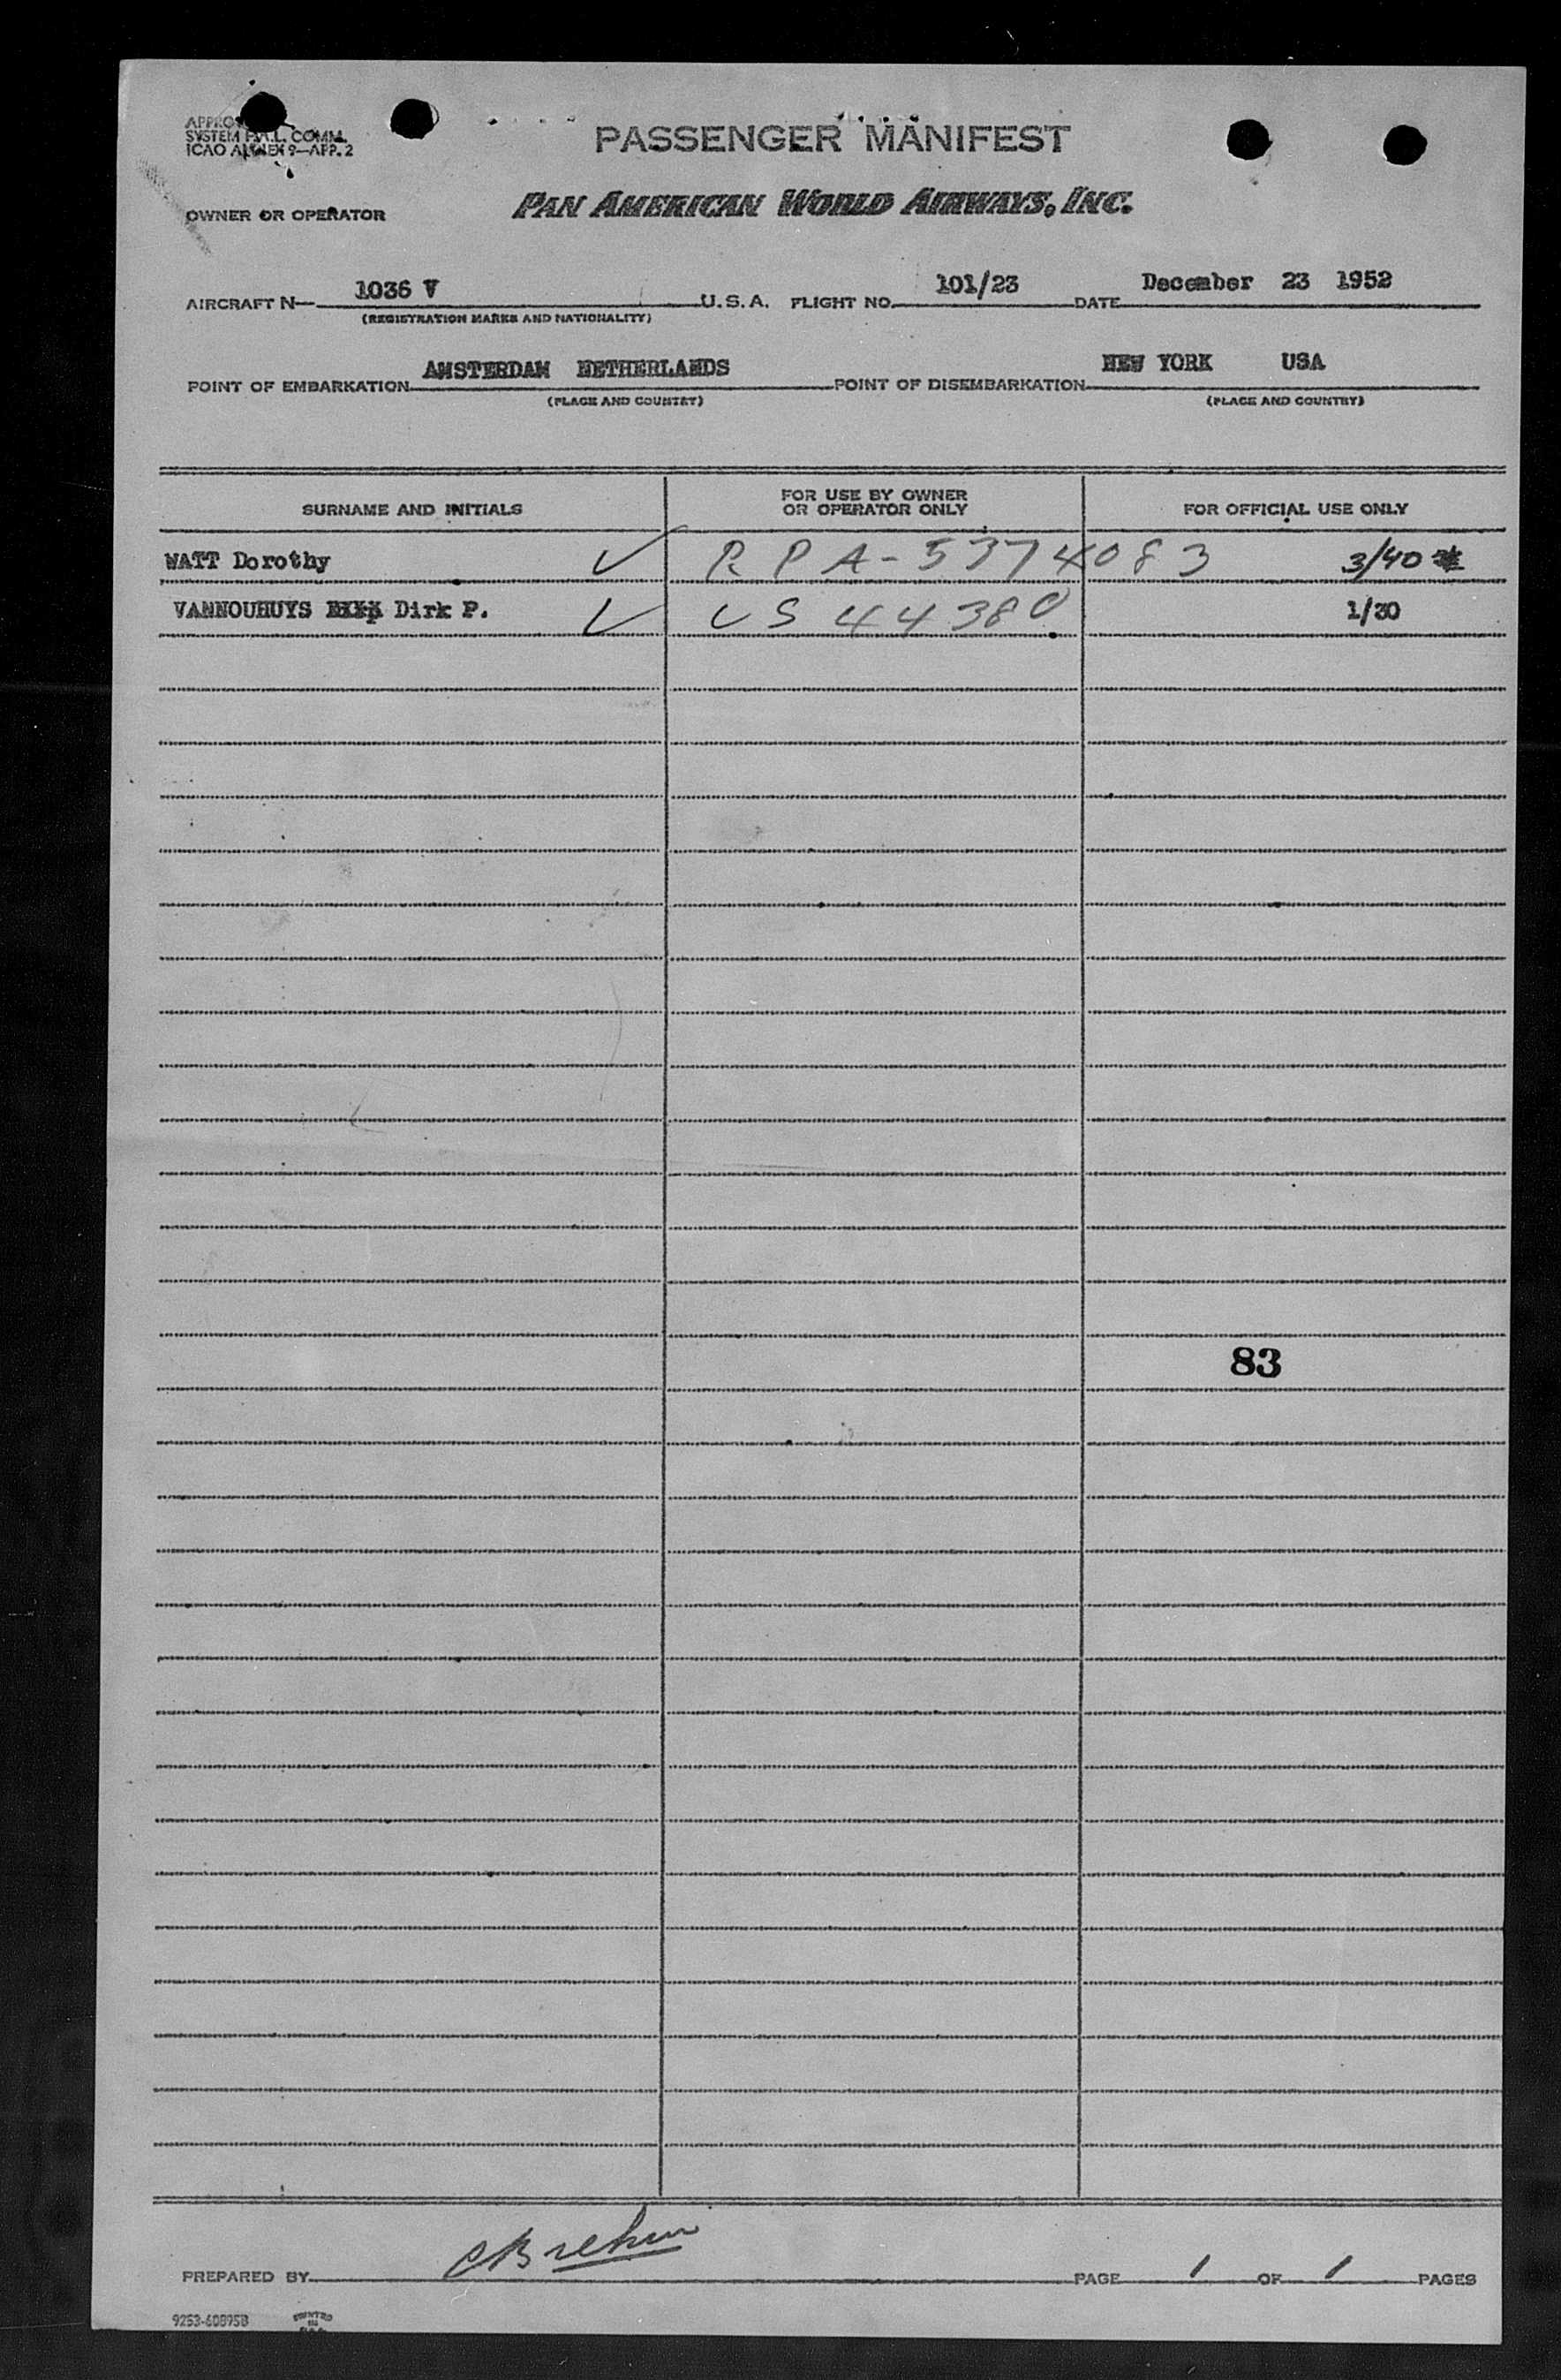 APPROVED
SYSTEM P.A.L. COMM.
ICAO ANNEX 9—APP. 2
PASSENGER MANIFEST
OWNER OR OPERATOR PAN AMERICAN WORLD AIRWAYS, INC.
AIRCRAFT N— 1036 V U.S.A. FLIGHT NO. 101/23 DATE December 23 1952
(REGISTRATION MARKS AND NATIONALITY)
POINT OF EMBARKATION AMSTERDAM NETHERLANDS POINT OF DISEMBARKATION NEW YORK USA
(PLACE AND COUNTRY) (PLACE AND COUNTRY)
SURNAME AND INITIALS FOR USE BY OWNER OR OPERATOR ONLY FOR OFFICIAL USE ONLY
WATT Dorothy ✓ R P A - 5374083 3/40
VANNOUHUYS Dirk P. ✓ US 44380 1/30
83
PREPARED BY CBrehm PAGE 1 OF 1 PAGES
9253-60895B PRINTED IN U.S.A.